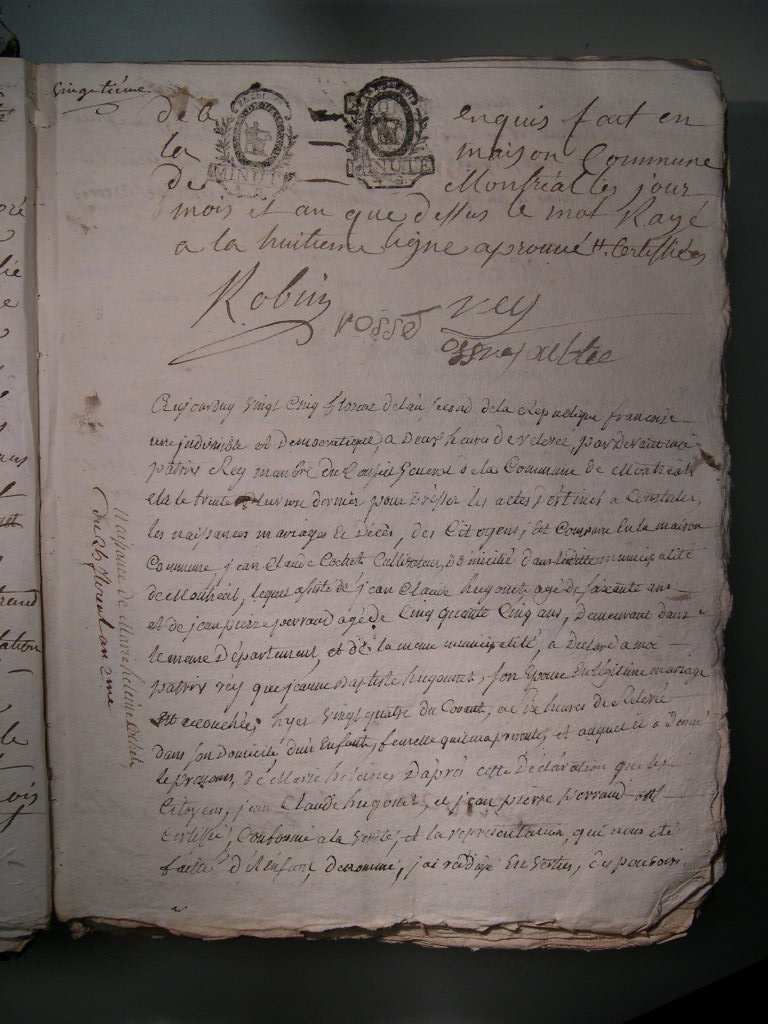 Cinquantième
de la enquis fait en
la maison Commune
de Montréal les jour
mois et an que dessus le mot Rayé
a la huitieme ligne aprouvé Certiffié
Robin rosset rey
Aujourduy vingt cinq floreal de lan second de la république francoise
une indivisible et Democratique, a deux heures de relevée, pardevant moi
patris Rey membre du Conseil General de la Commune de Montreal
elu le trente dernier pour Dresser les actes destines a Constater
les naissances mariages et Décès, des Citoyens, est Comparu en la maison
Commune jean Claude Cochet Cultivateur, Domicilié dans municipalité
de Montreal, lequel assisté de jean Claude hugonet agé de soixante ans
et de jean pierre perraud agé de Cinquante Cinq ans, Demeurant dans
le meme Département, et de la meme municipalité, a Déclaré a moi
patris rey que jeanne Baptiste hugonet, son Epouse en légitime mariage
est accouchée hyer vingt quatre du Courant, a heures de Relevé
dans son domicile d'un Enfant femelle quil ma presenté, et auquel il a Donné
le prenom, de Marie heleine D'après cette Déclaration que les
Citoyens, jean Claude hugonet, et jean pierre perraud ont
Certiffié, Conforme a la verité, et la representation, qui ma été
faitte de l'Enfant, denommé, j'ai rédigé En vertu, des pouvoirs
Naissance de Marie heleine Cochet
du 25 floreal an 2me
MINUTE
MINUTE